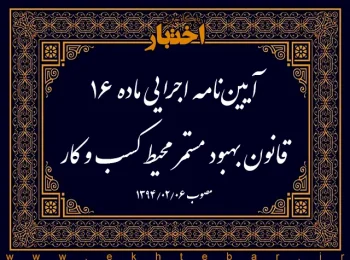 اختبار
آیین‌نامه اجرایی ماده ۱۶
قانون بهبود مستمر محیط کسب و کار
مصوب ۱۳۹۴/۰۲/۰۶
www.ekhtebar.ir